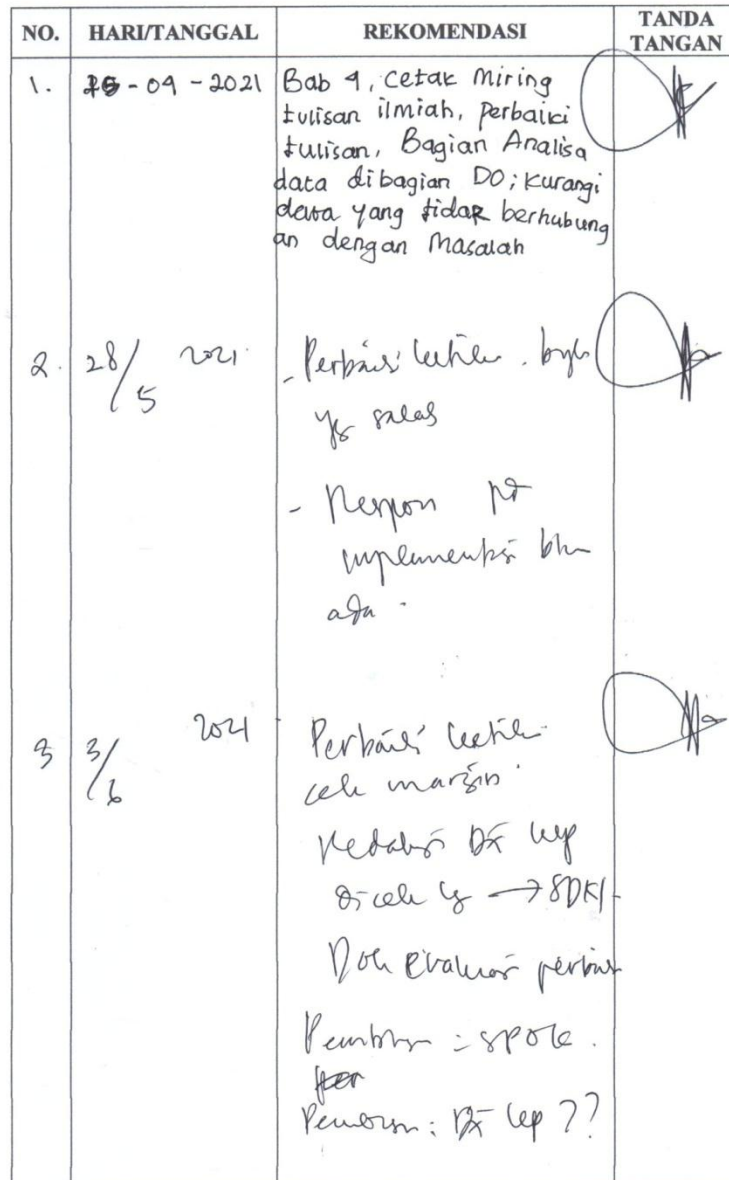 NO. HARI/TANGGAL REKOMENDASI TANDA TANGAN
1. -04-2021 Bab 4, cetak miring
tulisan ilmiah, perbaiki
tulisan, Bagian Analisa
data dibagian DO; kurangi
data yang tidak berhubung
an dengan Masalah
2. 28/5 2021 - Perbaiki
yg salah
- Respon
implementasi blm
ada.
3 3/6 2021 Perbaiki
cek margin
Redaksi Dx kep
dicek lg → SDKI
Dok Evaluasi
SPOK.
Dx kep ??